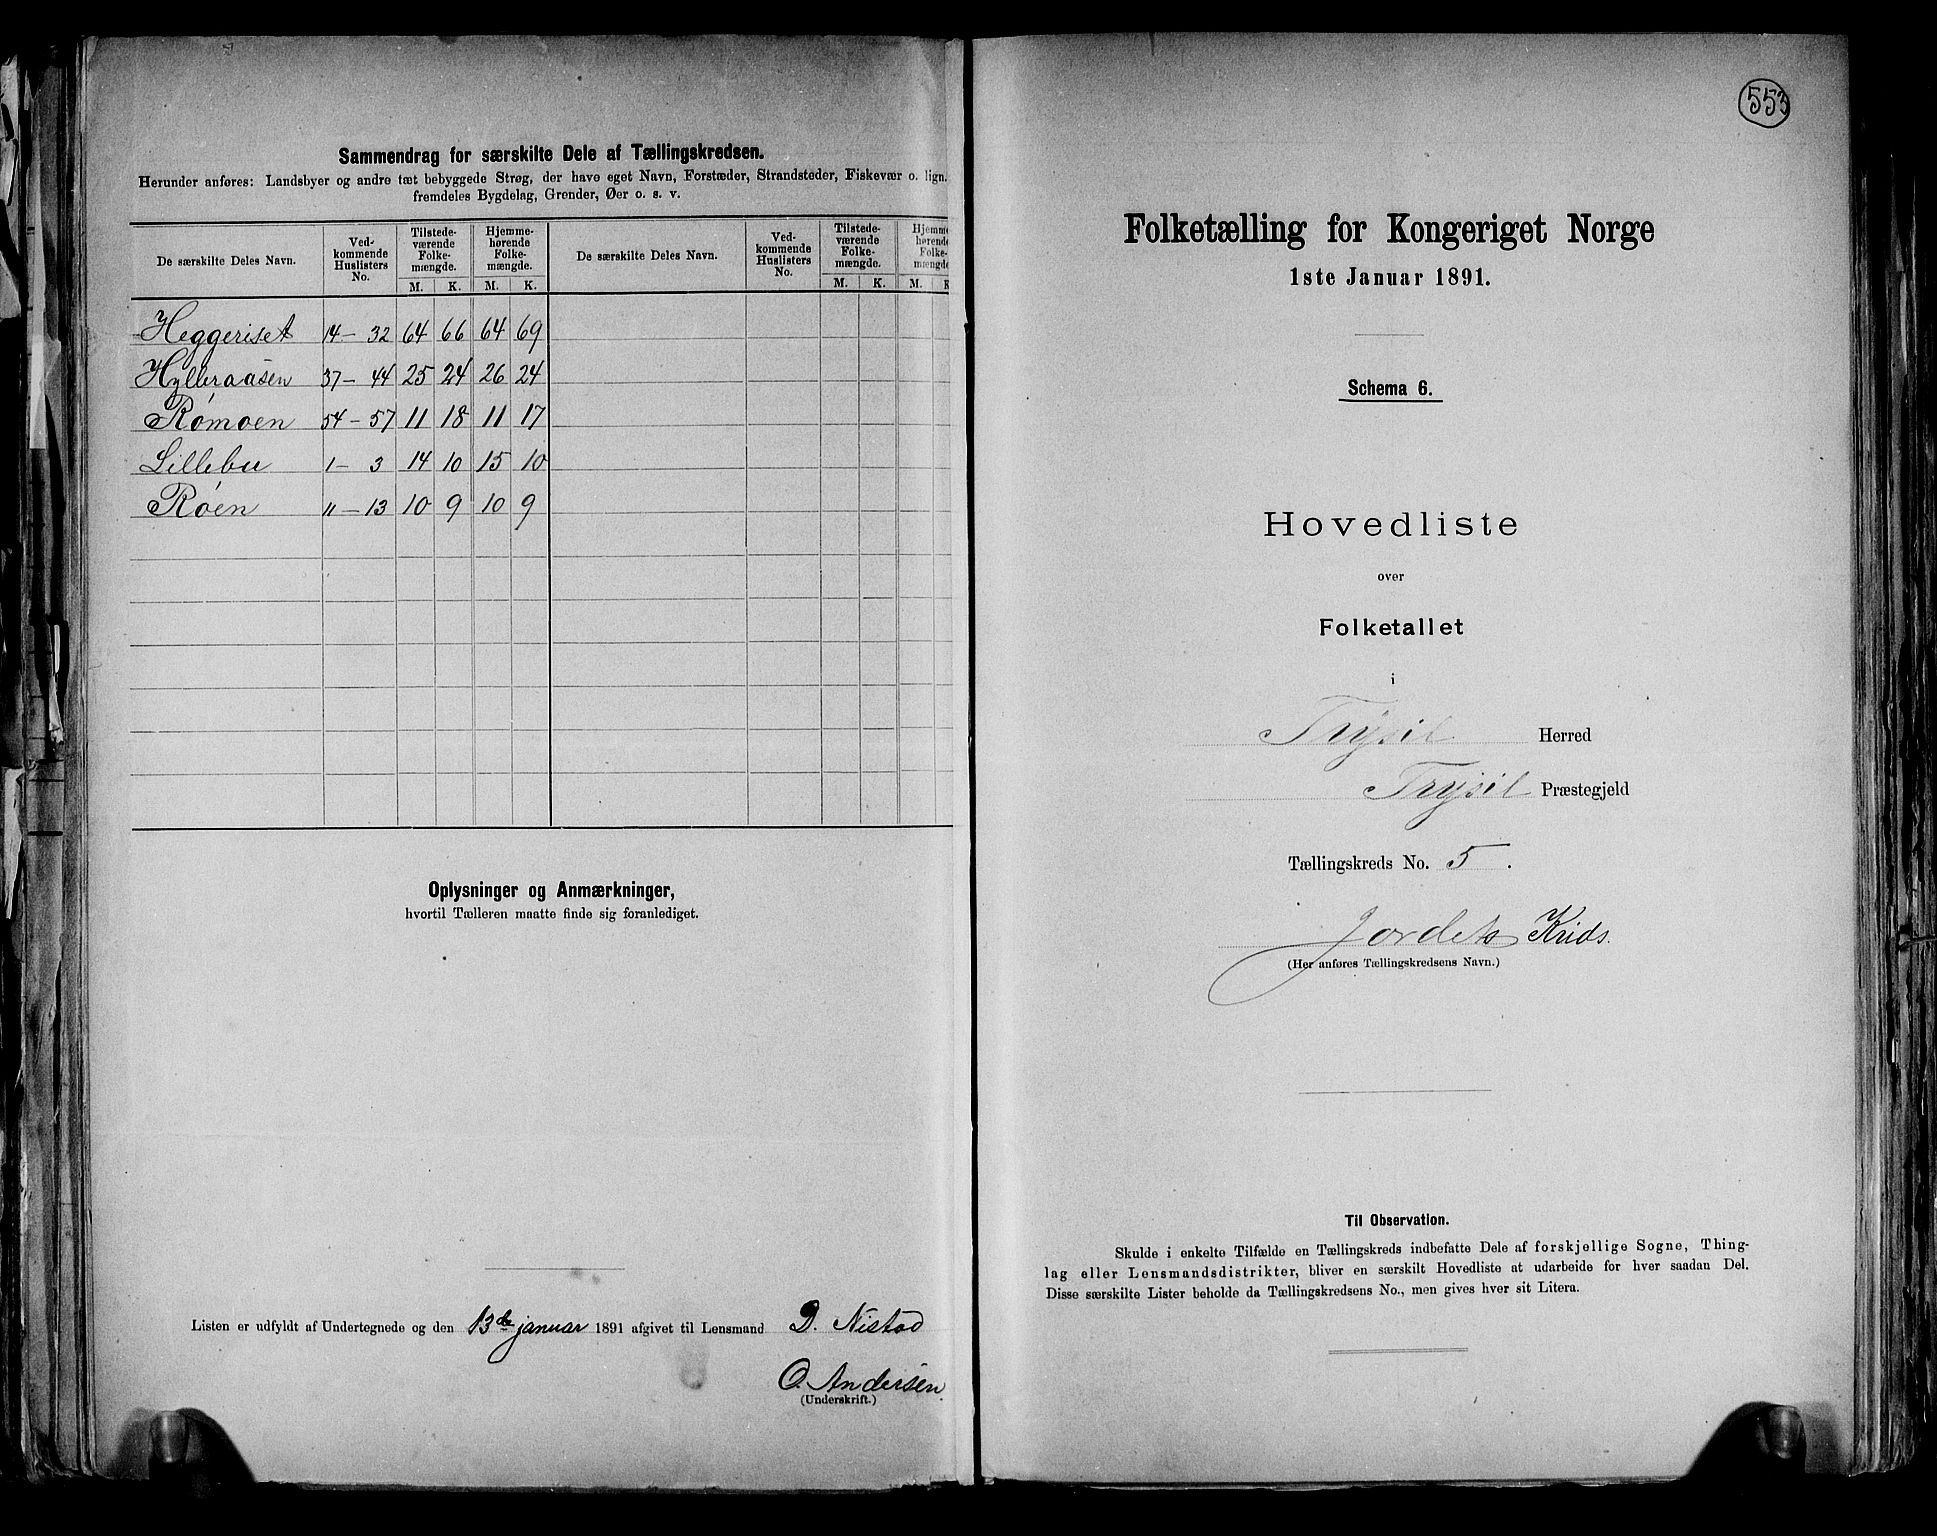 Sammendrag for særskilte Dele af Tællingskredsen.
Herunder anføres: Landsbyer og andre tæt bebyggede Strøg, der have eget Navn, Forstæder, Strandsteder, Fiskevær o. lign.
fremdeles Bygdelag, Grender, Øer o. s. v.
De særskilte Deles Navn. Ved-kommende Huslisters No. Tilstede-værende Folke-mængde. Hjemme-hørende Folke-mængde. De særskilte Deles Navn. Ved-kommende Huslisters No. Tilstede-værende Folke-mængde. Hjemme-hørende Folke-mængde
M. K. M. K. M. K. M. K
Heggeriset 14 — 32 64 66 64 69
Hylleraasen 37 — 44 25 24 26 24
Rómoen 54 — 57 11 18 11 17
Lillebu 1 — 3 14 10 15 10
Róen 11 — 13 10 9 10 9
Oplysninger og Anmærkninger,
hvortil Tælleren maatte finde sig foranlediget.
Listen er udfyldt af Undertegnede og den 13de januar 1891 afgivet til Lensmand D. Nistad
O. Andersen
(Underskrift.)
553
Folketælling for Kongeriget Norge
1ste Januar 1891.
Schema 6.
Hovedliste
over
Folketallet
i
Trysil Herred
Trysil Præstegjeld
Tællingskreds No. 5 .
Jordets Krids.
(Her anføres Tællingskredsens Navn.)
Til Observation.
Skulde i enkelte Tilfælde en Tællingskreds indbefatte Dele af forskjellige Sogne, Thing-
lag eller Lensmandsdistrikter, bliver en særskilt Hovedliste at udarbeide for hver saadan Del.
Disse særskilte Lister beholde da Tællingskredsens No., men gives hver sit Litera.